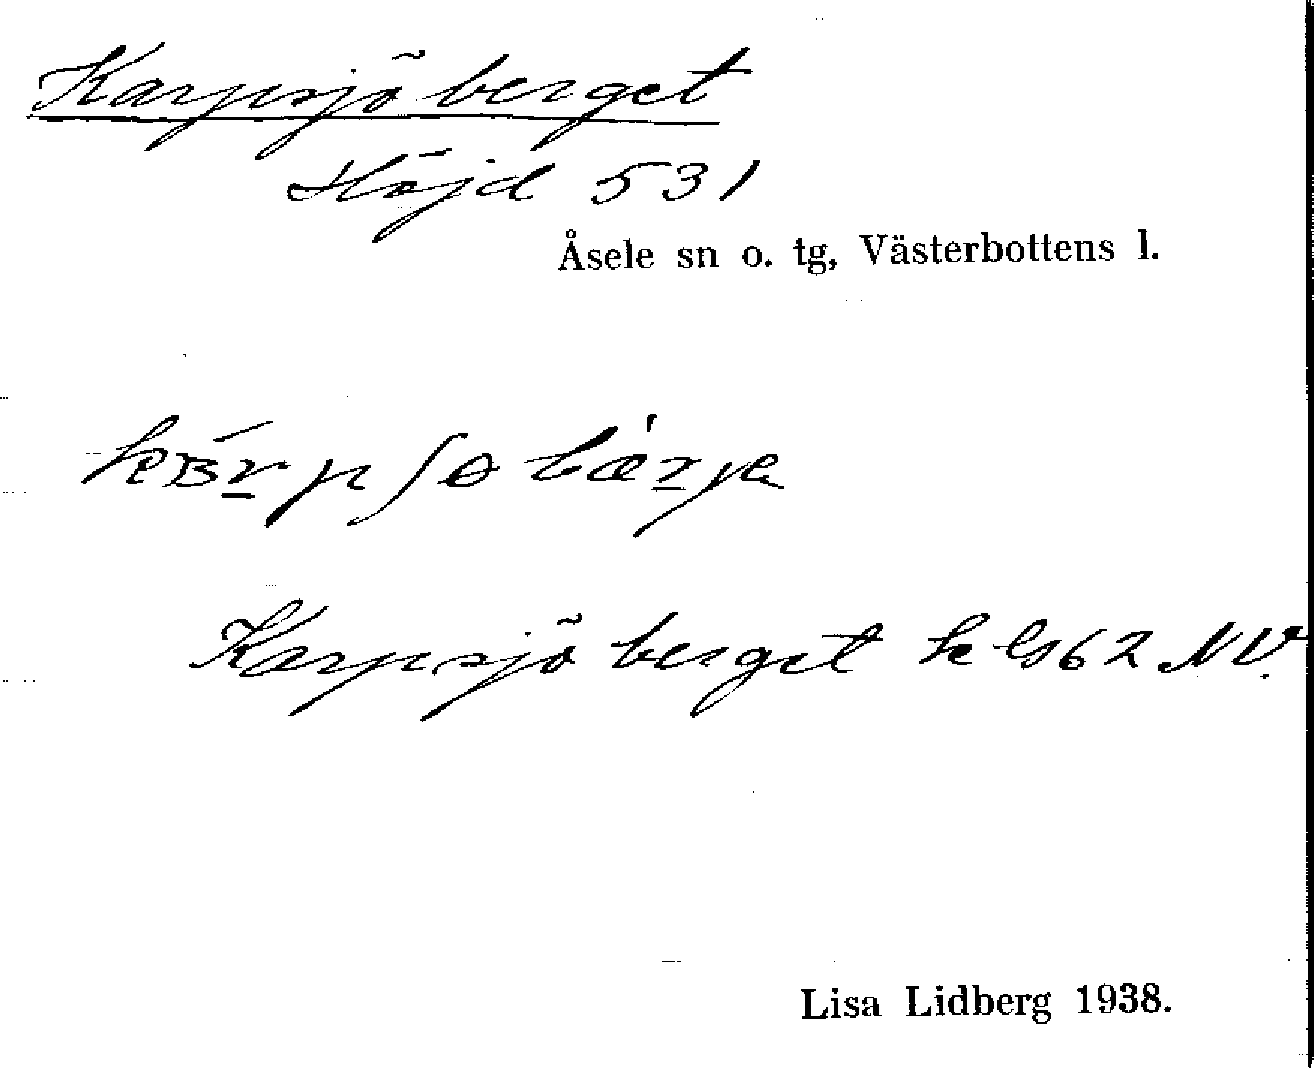 Karpsjöberget
Höjd 531
Åsele sn o. tg, Västerbottens l.
Karpsjöberget k bl 62 NV.
Lisa Lidberg 1938.